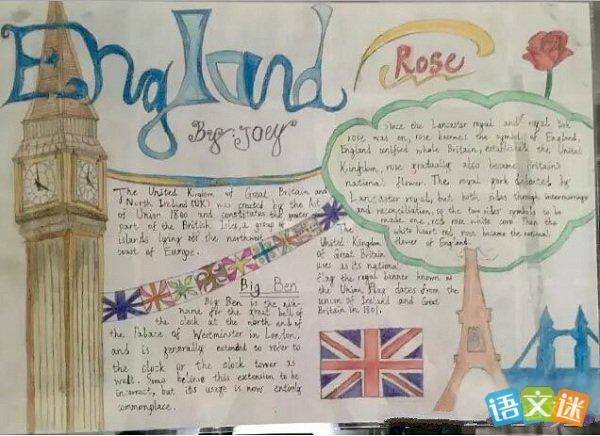 England
By: JOEY
Rose
Since the Lancaster royal and royal York
rose was on, rose becomes the symbol of England,
England unified whole Britain, established the United
Kingdom, rose gradually also became Britain's
national flower. The royal york defeated by
Lancaster royal, but both sides through intermarriage
and reconciliation, so the two sides' symbols to be
made one, red rose white core. Then the
white heart red rose became the national
flower of England.
The United Kingdom of Great Britain and
North Ireland (UK) was created by the Act
of Union 1800 and constitutes the greater
part of the British Isles, a group of
islands lying off the northwest
coast of Europe.
The
United Kingdom
of Great Britain
uses as its national
flag the royal banner known as
the Union Flag dates from the
union of Ireland and Great
Britain in 1801.
Big Ben
Big Ben is the nick-
name for the great bell of
the clock at the north end of
the Palace of Westminster in London,
and is generally extended to refer to
the clock or the clock tower as
well. Some believe this extension to be
incorrect, but its usage is now entirely
commonplace.
语文迷